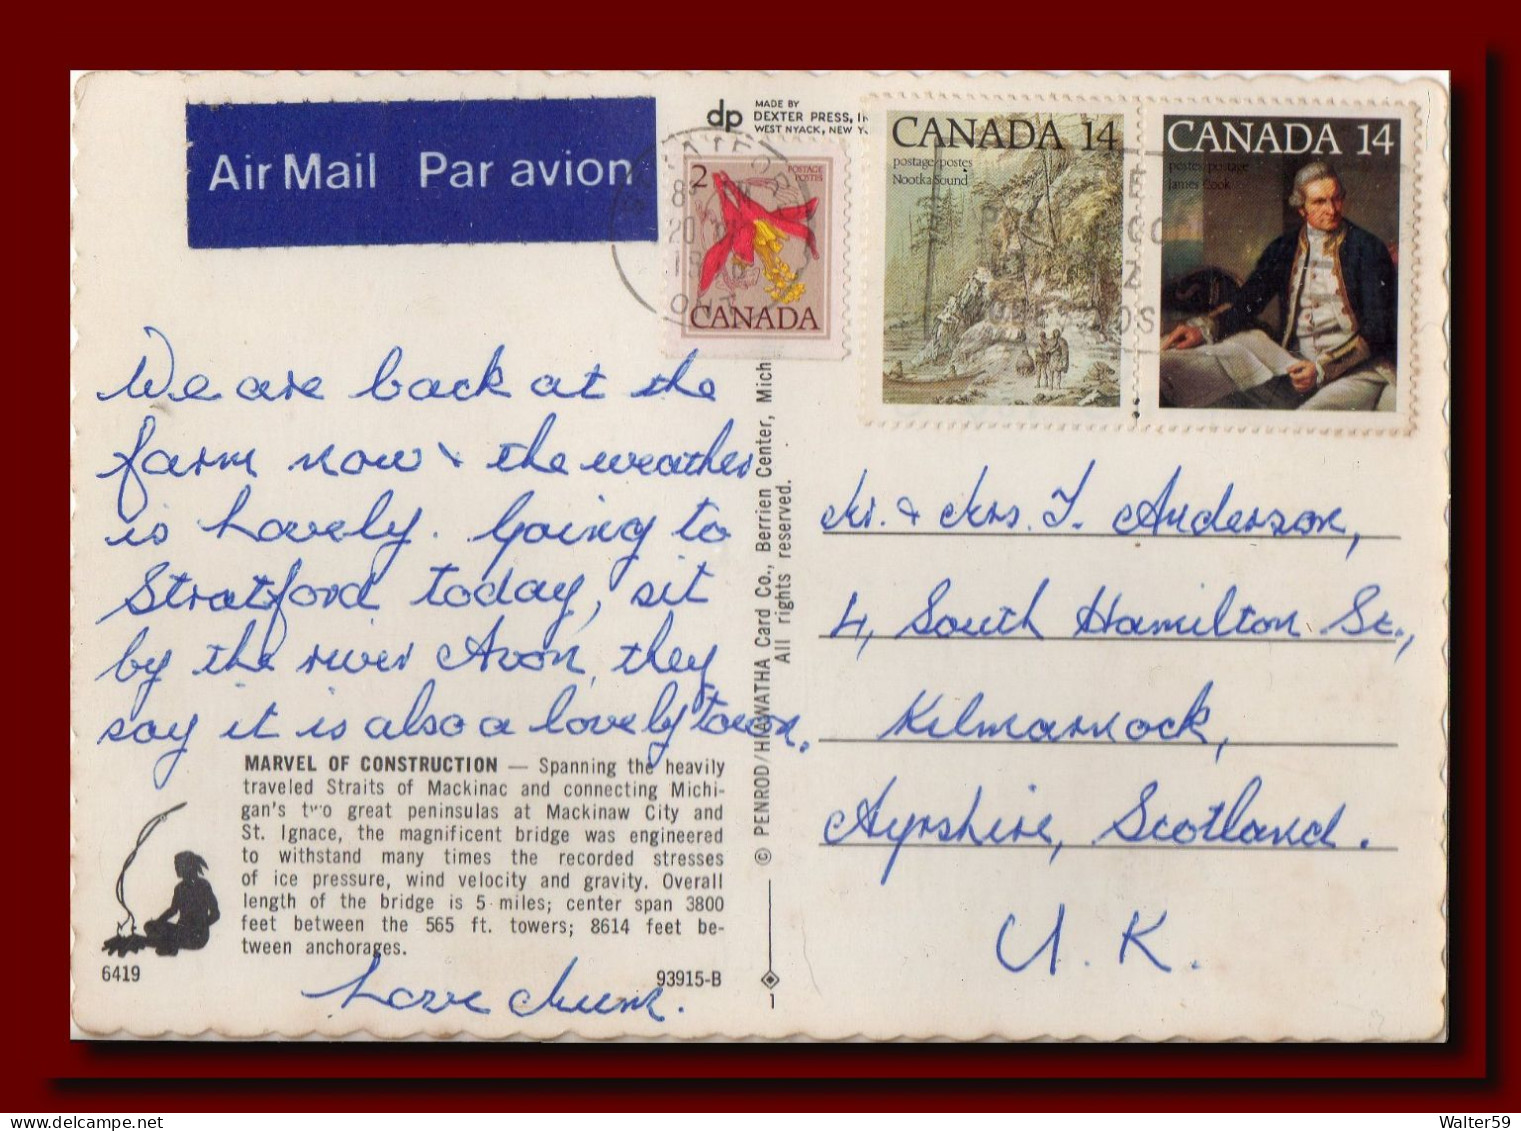 Air Mail Par avion
dp
MADE BY
DEXTER PRESS,
WEST NYACK, NEW
2
POSTAGE
POSTES
CANADA
CANADA 14
postage/postes
Nootka Sound
CANADA 14
postes/postage
James Cook
We are back at the
farm now & the weather
is lovely. Going to
Stratford today, sit
by the river Avon, they
say it is also a lovely town.
MARVEL OF CONSTRUCTION — Spanning the heavily
traveled Straits of Mackinac and connecting Michi-
gan's two great peninsulas at Mackinaw City and
St. Ignace, the magnificent bridge was engineered
to withstand many times the recorded stresses
of ice pressure, wind velocity and gravity. Overall
length of the bridge is 5 miles; center span 3800
feet between the 565 ft. towers; 8614 feet be-
tween anchorages.
6419
93915-B
Love Mum.
© PENROD/HIAWATHA Card Co., Berrien Center, Mich
All rights reserved.
1
Mr. & Mrs. T. Anderson,
4, South Hamilton St.,
Kilmarnock,
Ayrshire, Scotland.
U.K.
Walter59